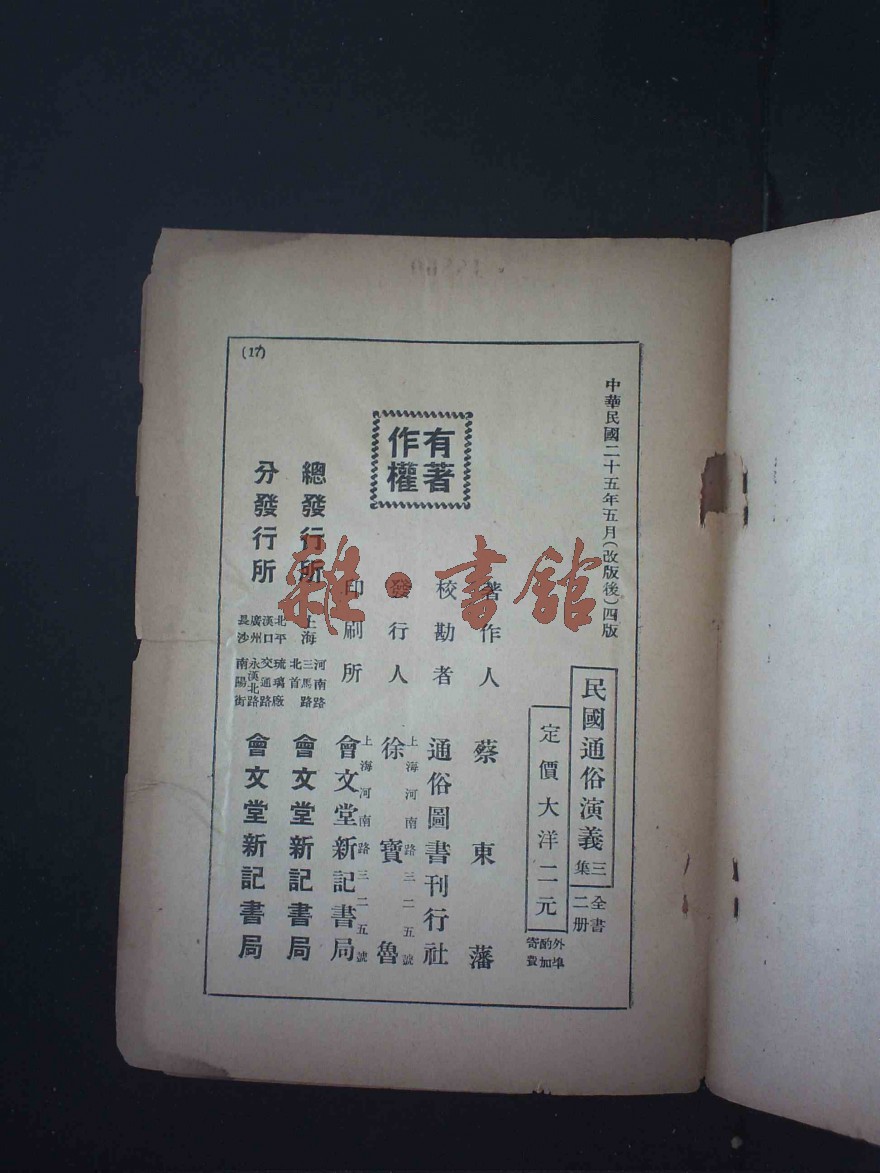 中華民國二十五年五月(改版後)四版
民國通俗演義 三集 全書二册
定價大洋二元
外埠酌加寄費
著作人 蔡東藩
校勘者 通俗圖書刊行社
發行人 上海河南路三二五號 徐寶魯
印刷所 上海河南路三二五號 會文堂新記書局
有著作權
總發行所 上海 河南路三馬路北首 會文堂新記書局
分發行所 北平琉璃廠 漢口交通路 廣州永漢北路 長沙南陽街 會文堂新記書局
(17)
雜·書館